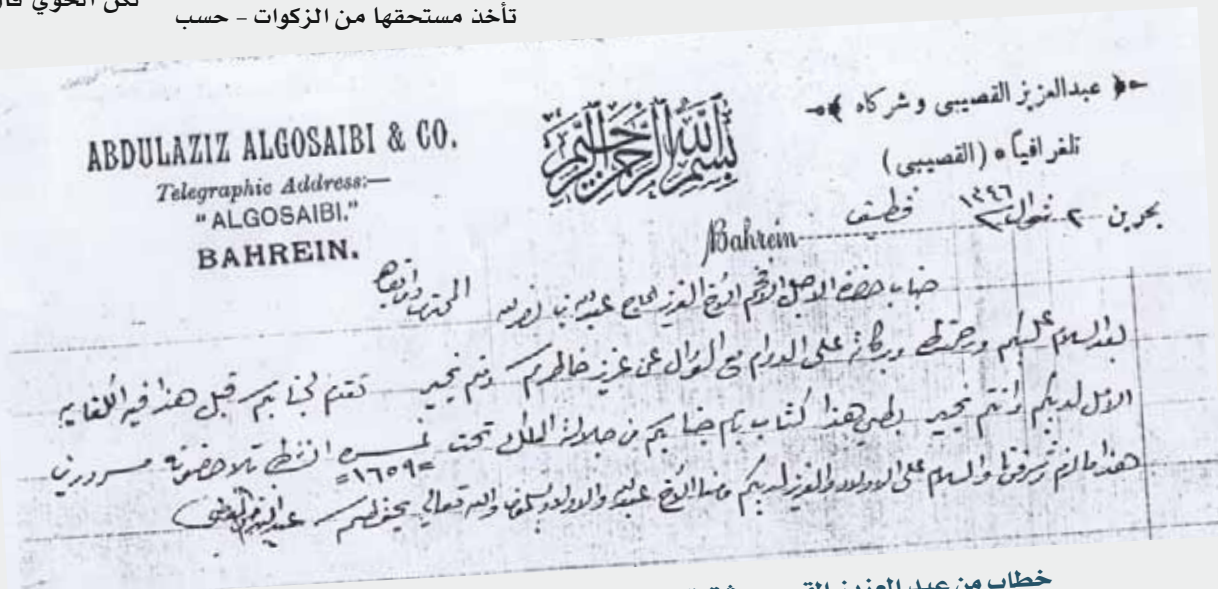 لكن
تأخذ مستحقها من الزكوات - حسب
ABDULAZIZ ALGOSAIBI & CO.
Telegraphic Address:—
"ALGOSAIBI."
BAHREIN.
بسم الله الرحمن الرحيم
عبدالعزيز القصيبى وشركاه
تلغرافياً * (القصيبى)
Bahrein
بحرين ٢ شوال ١٣٤٦
جناب حضرة الاجل الافخم الاخ العزيز الحاج عبدالله بن المحترم
بعد السلام عليكم ورحمة الله وبركاته على الدوام مع السؤال عن عزيز خاطركم ونحن بخير تقدم لجنابكم قبل هذا فيه الكفاية
الامل لديكم وانتم بخير بطي هذا كتاب باسم جنابكم من جلالة الملك تحت نمرة =١٦٥٩= مسرورين
هذا ما لزم والسلام على الاولاد والعزيز لديكم الاخ عبدالله والاولاد والله تعالى يحفظكم
خطاب من عبد العزيز